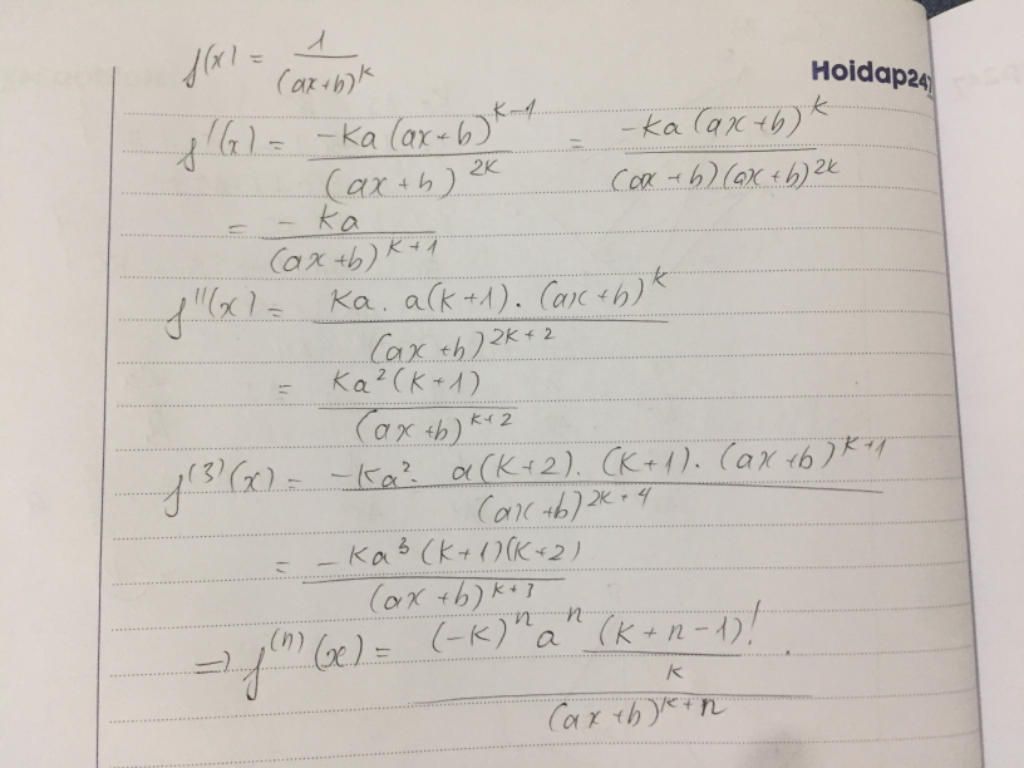 f(x) = 1/(ax+b)^k
Hoidap247
f'(x) = -ka(ax+b)^(k-1)/(ax+b)^(2k) = -ka(ax+b)^k/((ax+b)(ax+b)^(2k))
= -ka/(ax+b)^(k+1)
f''(x) = ka.a(k+1).(ax+b)^k/(ax+b)^(2k+2)
= ka²(k+1)/(ax+b)^(k+2)
f^(3)(x) = -ka².a(k+2).(k+1).(ax+b)^(k+1)/(ax+b)^(2k+4)
= -ka³(k+1)(k+2)/(ax+b)^(k+3)
=> f^(n)(x) = (-k)^n a^n ((k+n-1)!/k)/(ax+b)^(k+n) .